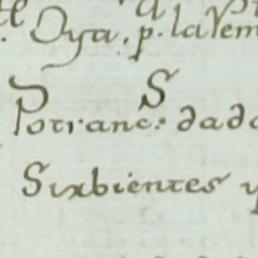 Oya. p. la Vem
S
Potranc.: dada
Sixbientes y